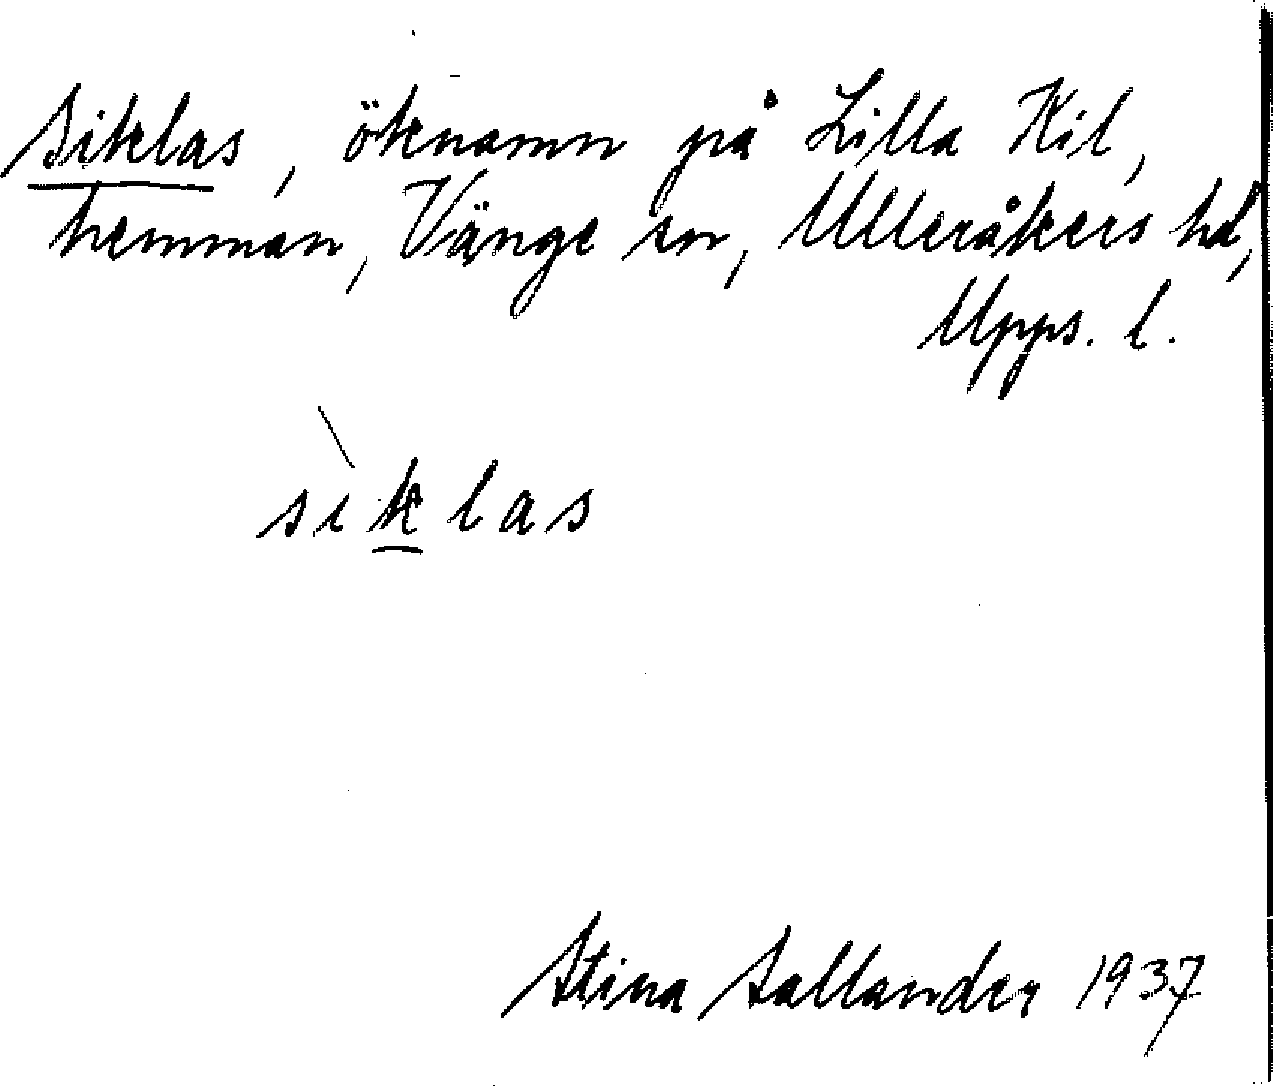 Siklas, öknamn på Lilla Kil,
hemman, Vänge sn, Ulleråkers hd,
Upps. l.
sìklas
Stina Sallander 1937